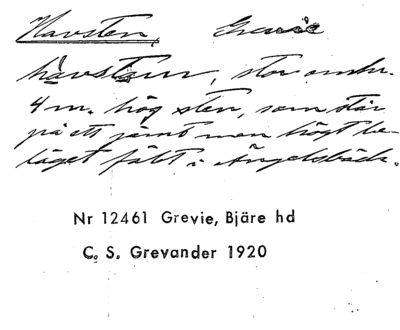 Havsten, Grevie
håvstain, stor omkr.
4 m. hög sten, som står
på ett jämt men högt be-
läget fält i Ängelsbäck.
Nr 12461 Grevie, Bjäre hd
C. S. Grevander 1920